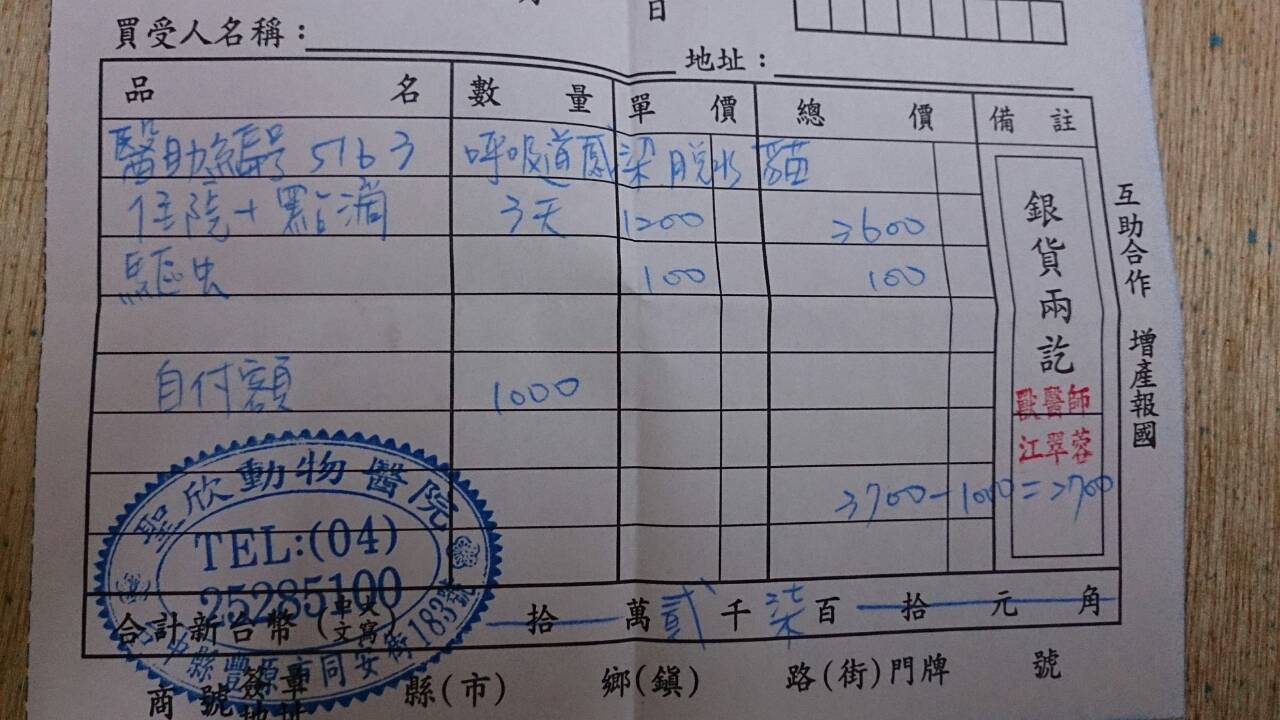 日
買受人名稱：
地址：
品名 數量 單價 總價 備註
醫助編號 5163 呼吸道感染脫水貓
住院+點滴 3天 1200 3600
驅虫 100 100
自付額 1000
3700-1000=2700
銀貨兩訖
獸醫師
江翠蓉
互助合作 增產報國
聖欣動物醫院
TEL:(04)
25285100
縣豐原市同安街183號
合計新台幣(中文大寫) 拾 萬 貳 千 柒 百 拾 元 角
商號簽章 縣(市) 鄉(鎮) 路(街)門牌 號
地址